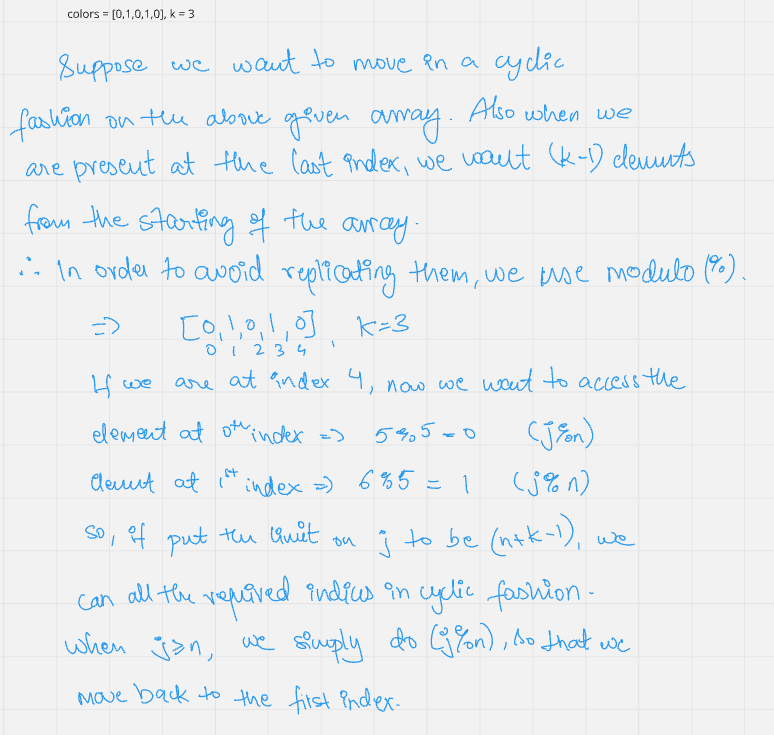 colors = [0,1,0,1,0], k = 3
Suppose we want to move in a cyclic
fashion on the above given array. Also when we
are present at the last index, we want (k-1) elements
from the starting of the array.
∴ In order to avoid replicating them, we use modulo (%).
=> [0,1,0,1,0], k=3
0 1 2 3 4
If we are at index 4, now we want to access the
element at 0th index => 5%5=0 (j%n)
element at 1st index => 6%5 = 1 (j%n)
so, if put the limit on j to be (n+k-1), we
can all the required indices in cyclic fashion.
when j≥n, we simply do (j%n), so that we
move back to the first index.